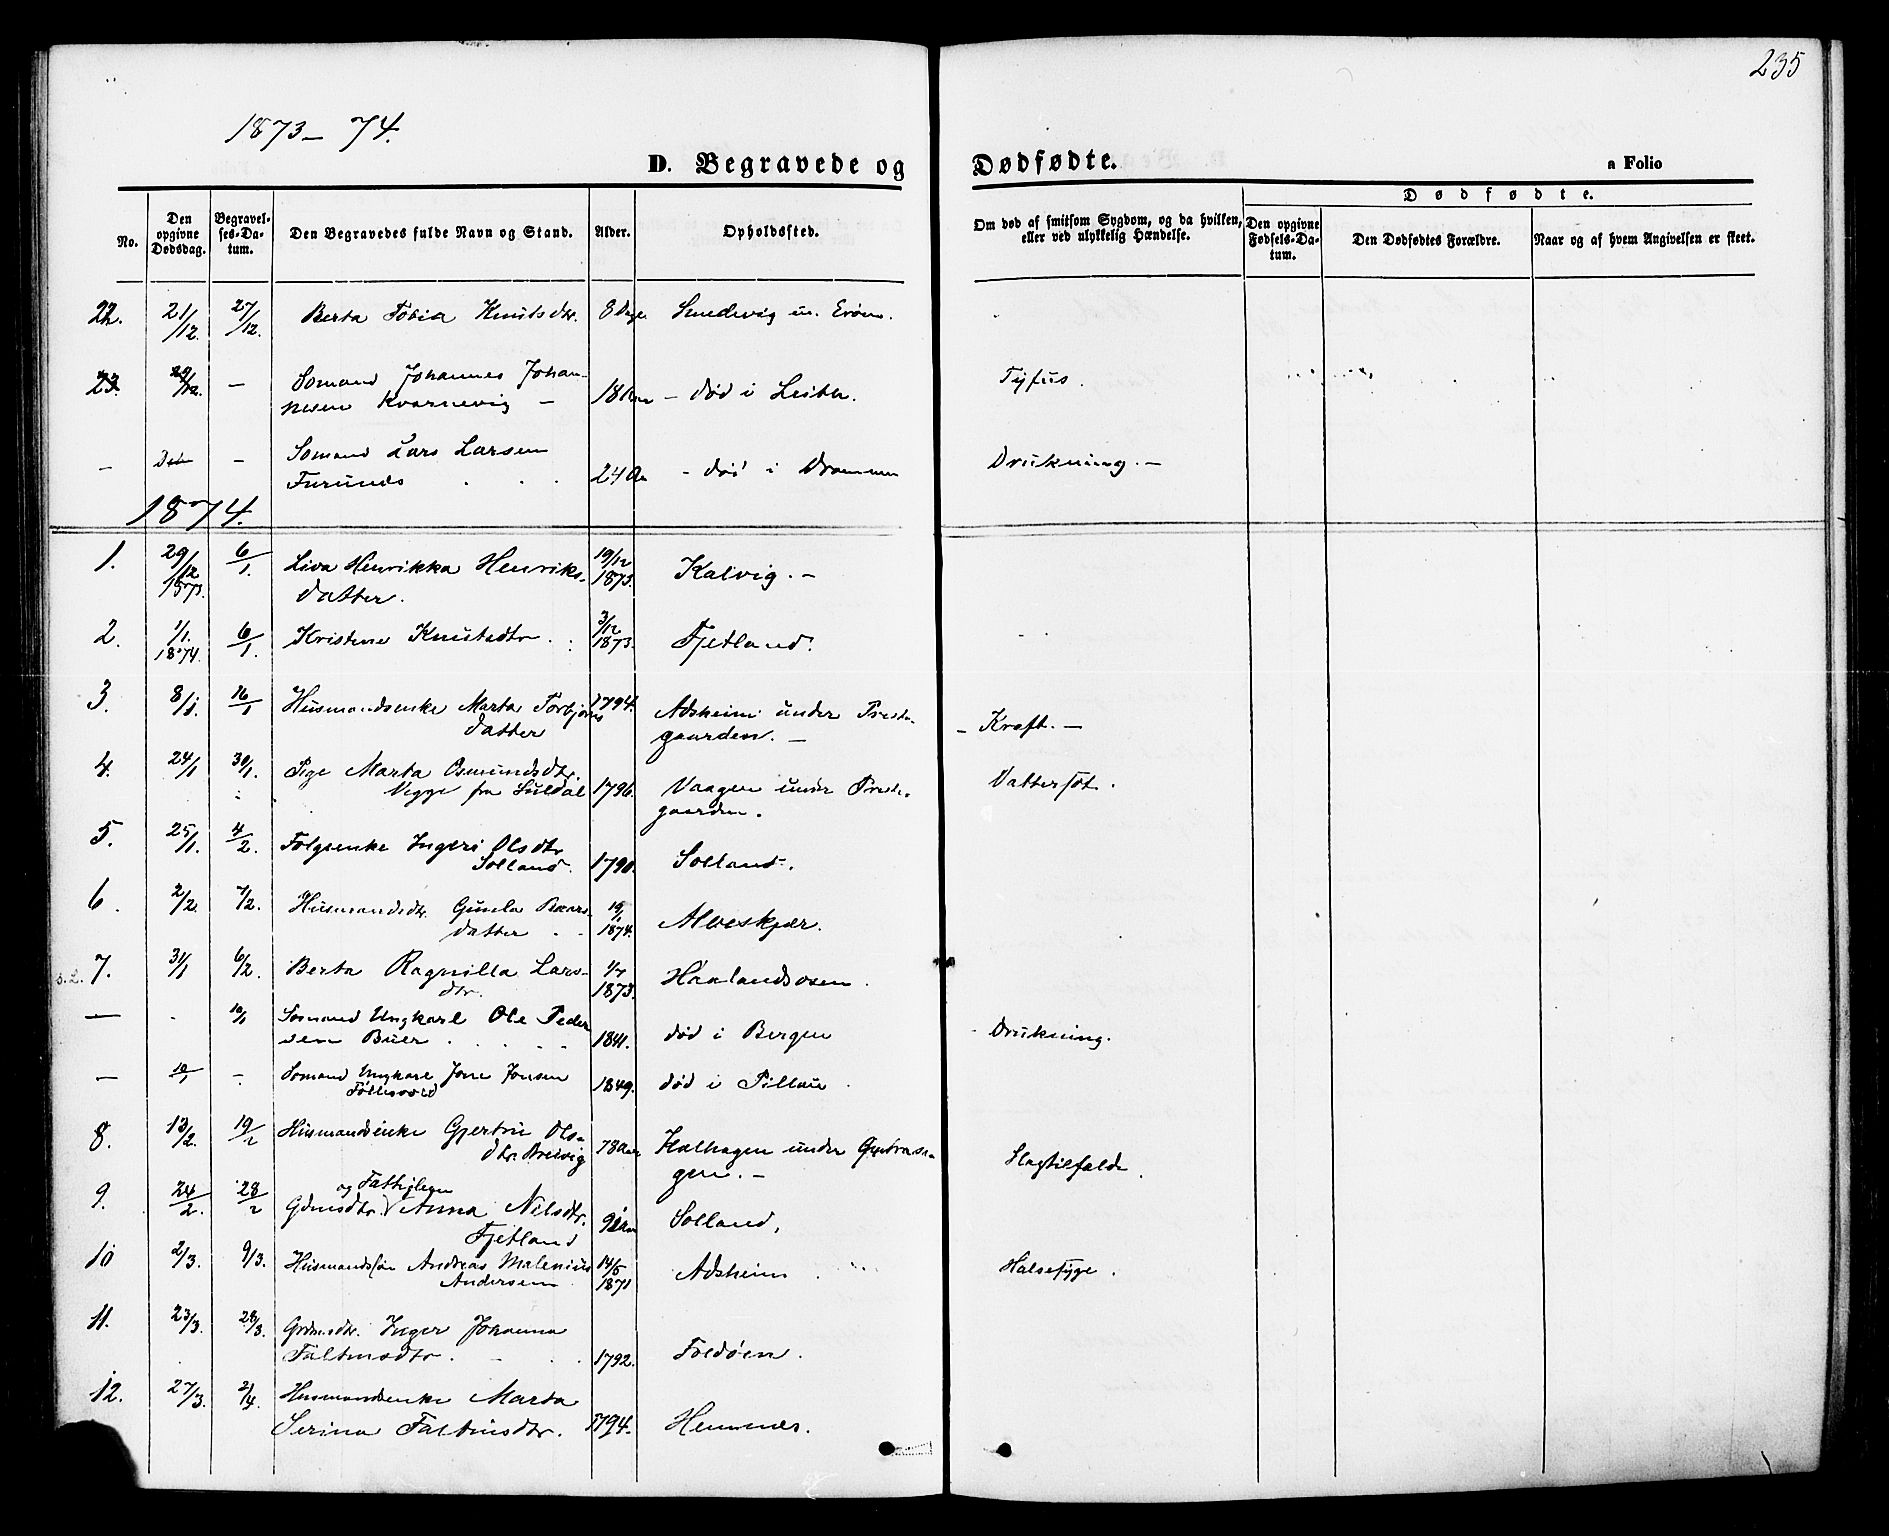 235
1873-74.
D. Begravede og Dødfødte.
a Folio
No.
Den opgivne Dødsdag.
Begravelses-Datum.
Den Begravedes fulde Navn og Stand.
Alder.
Opholdssted.
Om død af smitsom Sygdom, og da hvilken, eller ved ulykkelig Hændelse.
Dødfødte.
Den opgivne Fødsels-Datum.
Den Dødfødtes Forældre.
Naar og af hvem Angivelsen er skeet.
22. 21/12. 27/12. Berta Tobia Knutsdtr. 8 Dage Smedevig u.
23. 29/12. — Sømand Johannes Johan-
nesen Kvarnevig — 18 Aar — død i Leith. Tyfus.
— — Sømand Lars Larsen
24 Aar - død i Drammen Drukning. —
1874.
1. 29/12 1873. 6/1. Liva Henrikka Henriks-
datter. 19/12 1873. Kalvig. —
2. 1/1. 1874. 6/1. Kristine Knutsdtr. 3/12 1873. Fjetland.
3. 8/1. 16/1 Husmandsenke Marta Torbjørns
datter 1794. Adsheim under Preste-
gaarden. — — Kræft. —
4. 24/1 30/1. Pige Marta Osmundsdtr.
fra Suldal 1796. Vaagen under Preste-
gaarden. Vattersot.
5. 25/1. 4/2. Følgeenke Ingeri Olsdtr
Solland. 1790. Solland.
6. 2/2. 7/2. Husmandsdtr. Gunla Baars-
datter 19/1 1874. Alveskjær.
7. 31/1 6/2. Berta Ragnilla Lars-
dtr. 1/7 1873. Haalandsosen.
— 10/1 Sømand Ungkarl Ole Peder
sen Buer 1841. død i Bergen - Drukning.
— 10/1 - Sømand Ungkarl Jone Jonsen
1849. død i Pillau.
8. 13/2. 19/2 Husmandsenke Gjertru Ols-
dtr. Breivig 78 Aar
gen. — Slagtilfælde.
9. 24/2. 28/2 Gdmsdtr. og Fattiglem Anna Nilsdtr.
Fjetland 91 Aar Solland.
10 2/3. 9/3. Husmandssøn Andreas Malenius
Andersen 14/5 1871 Adsheim. Halsesyge.
11. 23/3. 28/3. Gdmsdtr. Inger Johanna
Faltinsdtr. 1792. Foldøen.
12. 27/3. 2/4. Husmandsenke Marta
Serina Faltinsdtr. 1794. Hemnes.